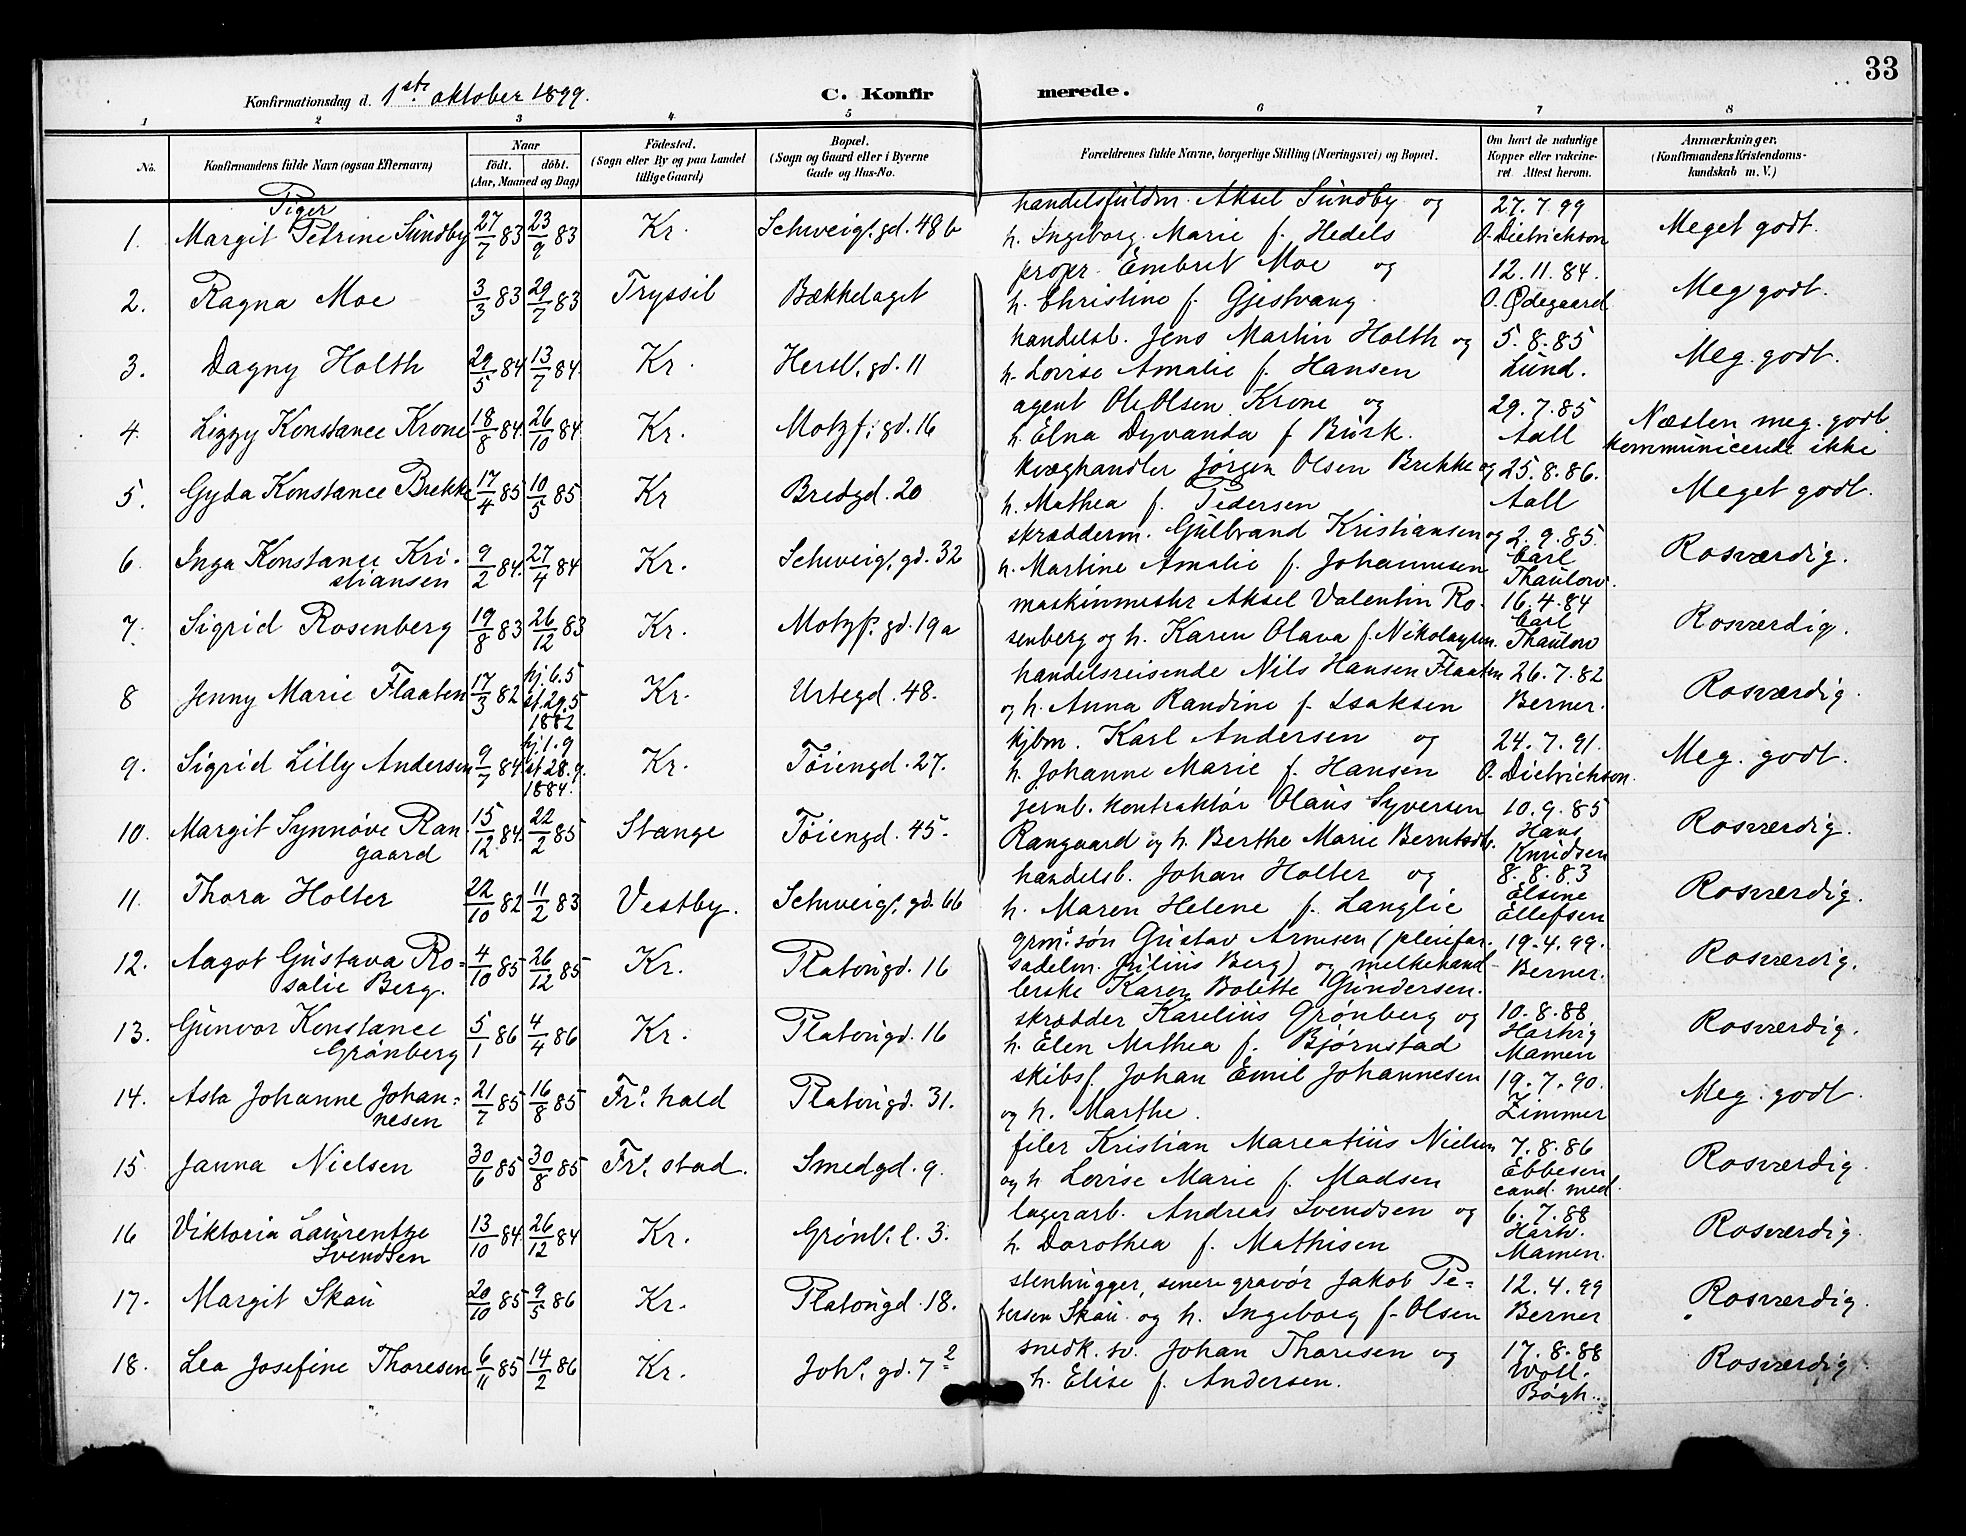 33
Konfirmationsdag d. 1ste oktober 1899. C. Konfirmerede.
1 2 3 4 5 6 7 8
No. Konfirmandens fulde Navn (ogsaa Efternavn) Naar födt. döbt. (Aar, Maaned og Dag) Födested. (Sogn eller By og paa Landet tillige Gaard) Bopæl. (Sogn og Gaard eller i Byerne Gade og Hus-No. Forældrenes fulde Navne, borgerlige Stilling (Næringsvei) og Bopæl. Om havt de naturlige Kopper eller vakcineret. Attest herom. Anmærkninger. (Konfirmandens Kristendomskundskab m. V.)
Piger
1. Margit Petrine Sundby 27/7 83 23/9 83 Kr. Schweigs. gd. 48 b handelsfuldm. Aksel Sundby og h. Ingeborg Marie f. Hedels 27.7.99 O. Dietrichson Meget godt.
2. Ragna Moe 3/3 83 29/7 83 Tryssil Bækkelaget propr. Embret Moe og h. Christine f. Gjestvang. 12.11.84. O. Ødegaard Meg godt.
3. Dagny Holth 29/5 84 13/7 84. Kr. Hersl. gd. 11 handelsb. Jens Martin Holth og h. Lovise Amalie f. Hansen 5.8.85 Lund. Meg. godt.
4. Lizzy Konstance Krone 18/8 84. 26/10 84. Kr. Motzf. gd. 16 agent Ole Olsen Krone og h. Elna Dyvanda f Burk. 29.7.85 Aall Næsten meg. godt kommunicerede ikke
5. Gyda Konstance Brekke 17/4 85 10/5 85 Kr Bredgd. 20 kvæghandler Jørgen Olsen Brekke og h. Mathea f. Pedersen 25.8.86. Aall Meget godt.
6. Inga Konstance Kristiansen 9/2 84. 27/4 84 Kr. Schweigs. gd. 32 skrædderm. Gulbrand Kristiansen og h. Martine Amalie f. Johannesen 2.9.85. Carl Thaulow. Rosværdig.
7. Sigrid Rosenberg 19/8 83 26/12 83 Kr. Motzfs. gd. 19a maskinmester Aksel Valentin Rosenberg og h. Karen Olava f. Nikolaysen. 16.4.84 Carl Thaulow Rosværdig.
8 Jenny Marie Flaaten 17/3 82 hj. 6.5 st. 29.5 1882 Kr. Urtegd. 48. handelsreisende Nils Hansen Flaaten og h. Anna Randine f. Isaksen 26.7.82 Berner. Rosværdig.
9. Sigrid Lilly Andersen 9/7 84. hj. 1.9 st 28.9. 1884. Kr. Töiengd. 27. kjbm. Karl Andersen og h. Johanne Marie f. Hansen 24.7.91. O. Dietrichson. Meg. godt.
10. Margit Synnøve Rangaard 15/12 84. 22/2 85 Stange Töiengd. 45. jernb. kontraktør Olaus Syversen Rangaard og h. Berthe Marie Berntsdtr. 10.9.85 Hans Knudsen Rosværdig.
11. Thora Holter 22/10 82 11/2 83 Vestby. Schweigs. gd. 66 handelsb. Johan Holter og h. Maren Helene f. Langlie 8.8.83 Elsine Ellefsen Rosværdig.
12. Aagot Gustava Rosalie Berg. 4/10 85 26/12 85 Kr. Platougd. 16 grms søn Gustav Arnesen (pleiefar. sadelm. Julius Berg) og melkehandlerske Karen Bolette Gundersen. 19.4.99. Berner. Rosværdig.
13. Gunvor Konstance Grønberg 5/1 86 4/4 86 Kr. Platougd. 16 skrædder Karelius Grønberg og h. Elen Mathea f. Bjørnstad 10.8.88 Hartvig Mamen Rosværdig.
14. Asta Johanne Johannesen 21/7 85 16/8 85 Frs. hald Platougd. 31. skibsf. Johan Emil Johannesen og h. Marthe. 19.7.90. Zimmer Meg. godt.
15 Janna Nielsen 30/6 85 30/8 85 Frs. stad. Smedgd. 9. filer Kristian Mareatius Nielsen og h Lovise Marie f. Madsen 7.8.86 Ebbesen cand. med. Rosværdig.
16 Viktoria Laurentze Svendsen 13/10 84. 26/12 84 Kr. Grønls. l. 3. lagerarb. Andreas Svendsen og h. Dorothea f. Mathisen 6.7.88 Hartv. Mamen. Rosværdig.
17. Margit Skau 20/10 85 9/5 86 Kr. Platougd. 18. stenhugger, senere gravör Jakob Petersen Skau og h. Ingeborg f. Olsen 12.4.99 Berner Rosværdig.
18. Lea Josefine Thoresen 6/11 85 14/2 86 Kr. Johs. gd. 7² snedk. sv. Johan Thoresen og h. Elise f. Andersen. 17.8.88 Woll. Bögh. Rosværdig.